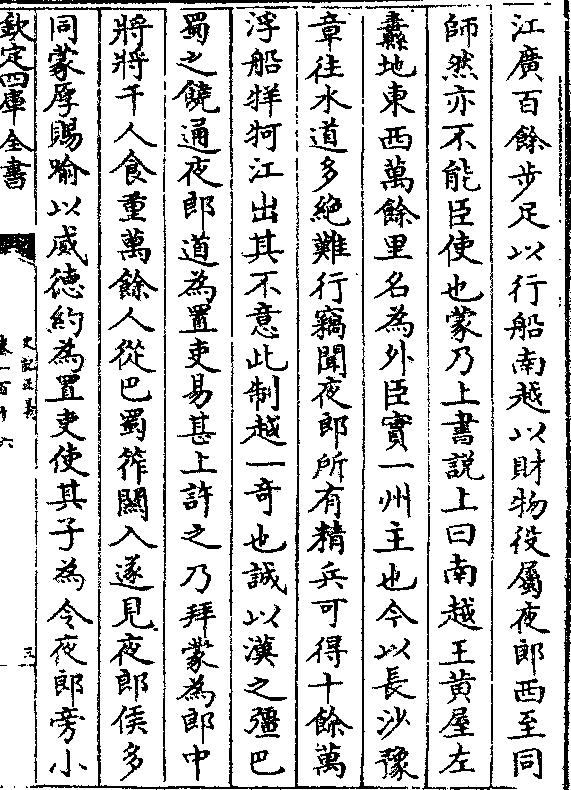 江廣百餘步足以行船南越以財物役屬夜郎西至同
師然亦不能臣使也蒙乃上書説上曰南越王黄屋左
纛地東西萬餘里名為外臣實一州主也今以長沙豫
章往水道多絶難行竊聞夜郎所有精兵可得十餘萬
浮船牂牁江出其不意此制越一奇也誠以漢之彊巴
蜀之饒通夜郎道為置吏易甚上許之乃拜蒙為郎中
將將千人食重萬餘人從巴蜀筰關入遂見夜郎侯多
同蒙厚賜喻以威德約為置吏使其子為令夜郎旁小
欽定四庫全書
史記正義
卷一百十六
三